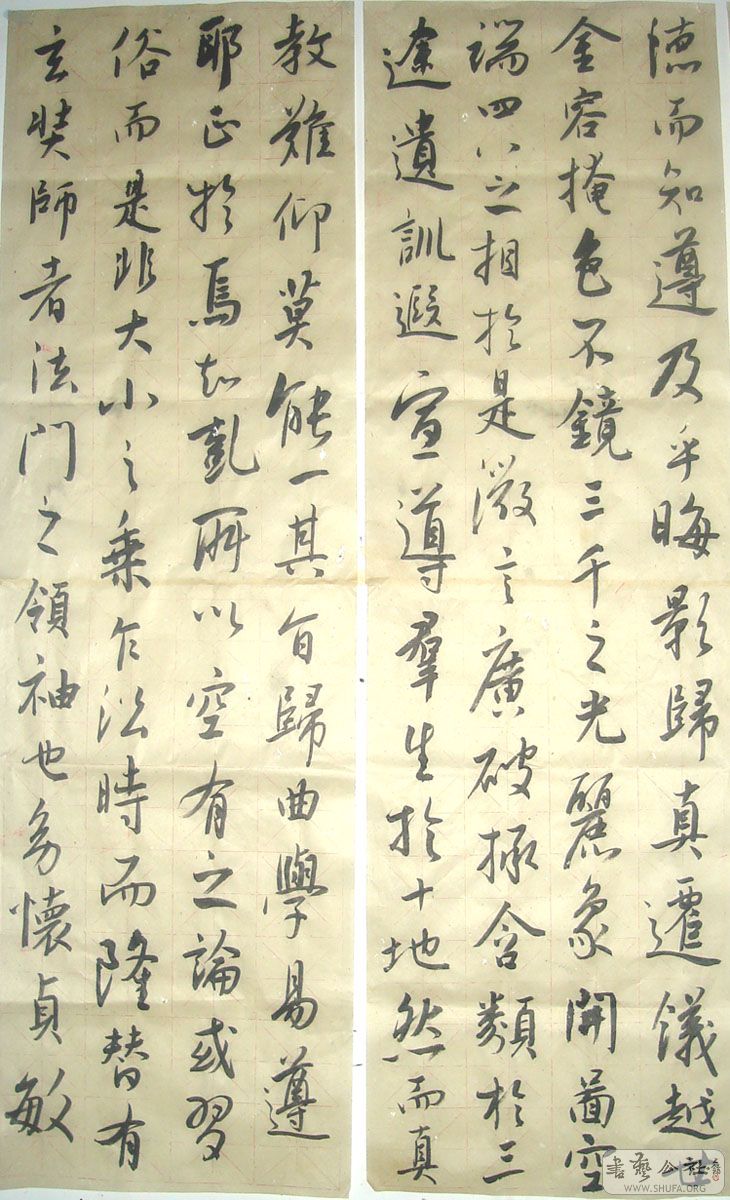 德而知遵及乎晦影歸真遷儀越
金容掩色不鏡三千之光麗象開圖空
端四八之相於是微言廣被拯含類於三
途遺訓遐宣導羣生於十地然而真
教難仰莫能一其旨歸曲學易遵
耶正於焉紛糾所以空有之論或習
俗而是非大小之乘乍沿時而隆替有
玄奘師者法門之領袖也幼懷貞敏
書藝公社
WWW.SHUFA.ORG